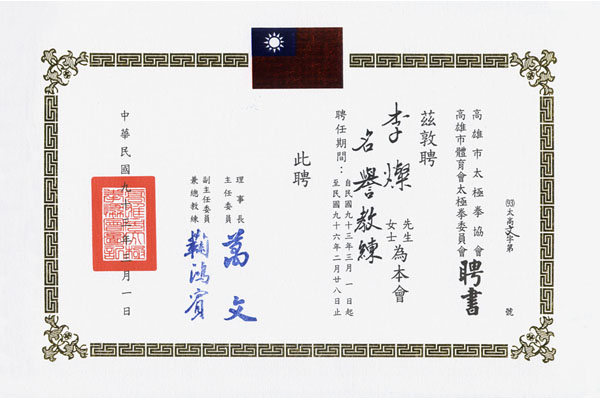 ㉝太高文字第　　號
高雄市太極拳協會
高雄市體育會太極拳委員會
聘書
茲敦聘
李燦
先生
女士
為本會
名譽教練
聘任期間：
自民國九十三年三月一日起
至民國九十六年二月廿八日止
此聘
理事長
主任委員
萬文
副主任委員
兼總教練
鞠鴻賓
中華民國九十三年三月一日